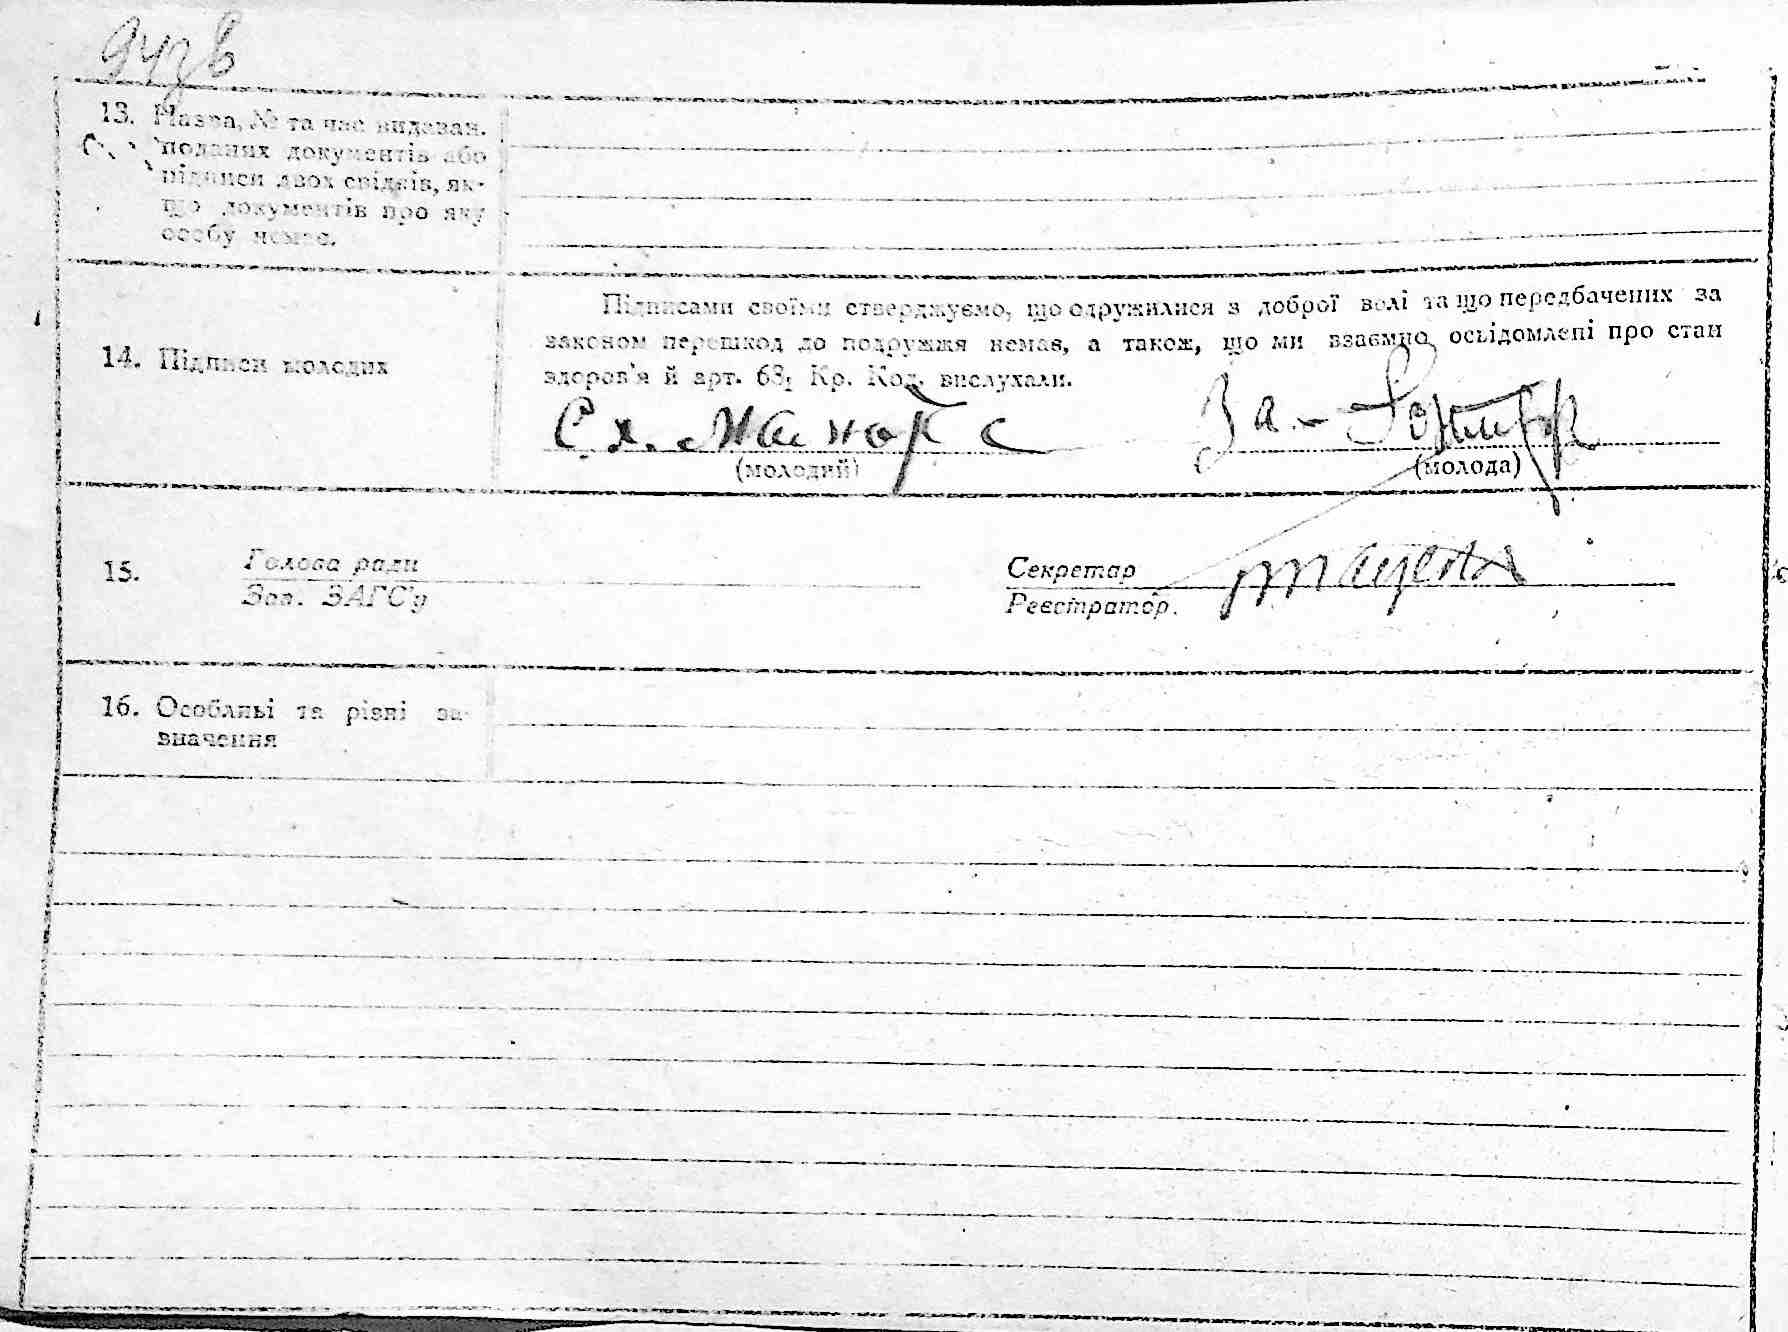 13. Назва, № та час видаван.
поданих документів або
підписи двох свідків, як-
що документів про яку
особу немає.
14. Підписи молодих
Підписами своїми стверджуємо, що одружилися з доброї волі та що передбачених за
законом перешкод до подружжя немає, а також, що ми взаємно осьідомлені про стан
здоров'я й арт. 68, Кр. Код. вислухали.
(молодий)
(молода)
15. Голова ради
Зав. ЗАГС'у
Секретар
Реєстратор.
16. Особливі та різні за-
значення